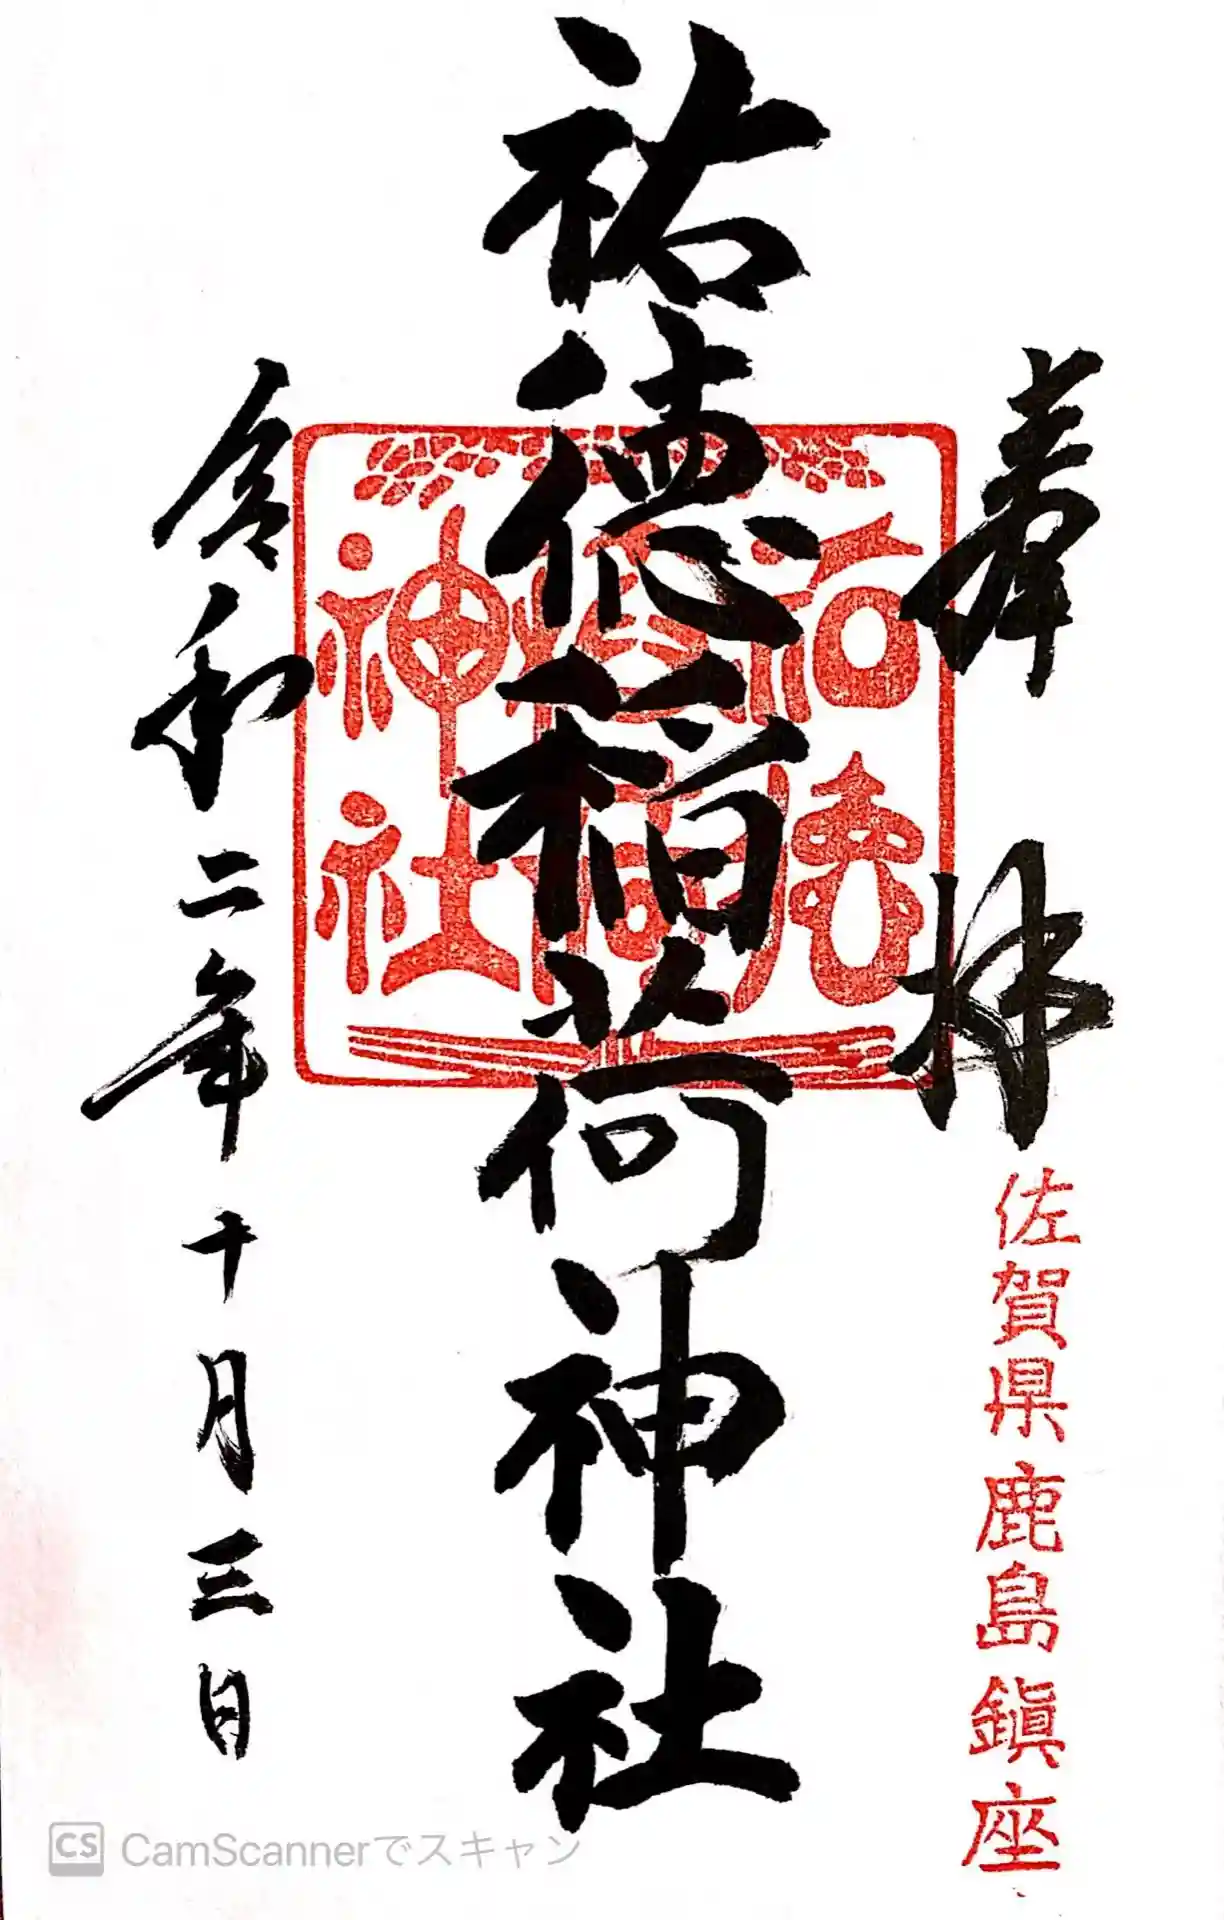 奉拝
佐賀県鹿島鎮座
祐徳稲荷神社
祐徳
稲荷
神社
令和二年十月三日
CS CamScannerでスキャン